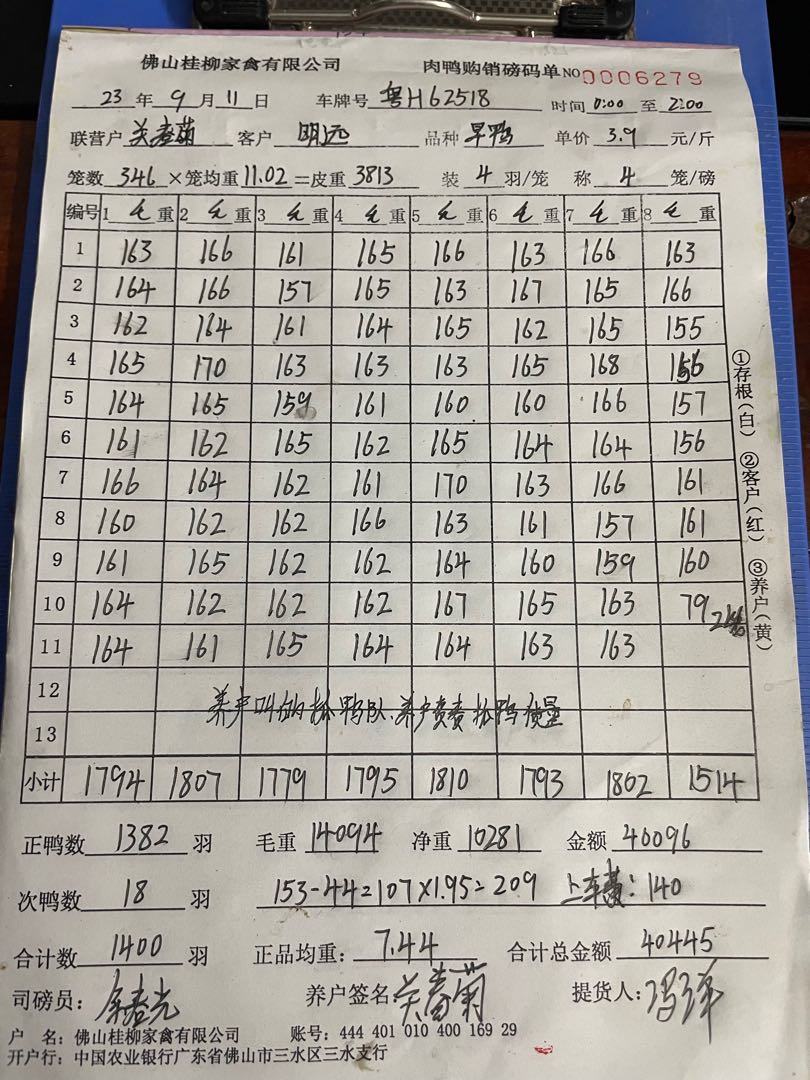 佛山桂柳家禽有限公司 肉鸭购销磅码单 NO 0006279
23 年 9 月 11 日 车牌号 粤H62518 时间 0:00 至 2:00
联营户 关春菊 客户 明远 品种 旱鸭 单价 3.9 元/斤
笼数 346 ×笼均重 11.02 =皮重 3813 装 4 羽/笼 称 4 笼/磅
编号 1 毛 重 2 毛 重 3 毛 重 4 毛 重 5 毛 重 6 毛 重 7 毛 重 8 毛 重
1 163 166 161 165 166 163 166 163
2 164 166 157 165 163 167 165 166
3 162 164 161 164 165 162 165 155
4 165 170 163 163 163 165 168 156
5 164 165 159 161 160 160 166 157
6 161 162 165 162 165 164 164 156
7 166 164 162 161 170 163 166 161
8 160 162 162 166 163 161 157 161
9 161 165 162 162 164 160 159 160
10 164 162 162 162 167 165 163 79
11 164 161 165 164 164 163 163
12
养户叫的抓鸭队、养户负责抓鸭质量
13
小计 1794 1807 1779 1795 1810 1793 1802 1514
正鸭数 1382 羽 毛重 14094 净重 10281 金额 40096
次鸭数 18 羽 153-44=107×1.95=209 上车费:140
合计数 1400 羽 正品均重: 7.44 合计总金额 40445
司磅员: 养户签名 关春菊 提货人:
户 名: 佛山桂柳家禽有限公司 账号: 444 401 010 400 169 29
开户行: 中国农业银行广东省佛山市三水区三水支行
①存根(白) ②客户(红) ③养户(黄)